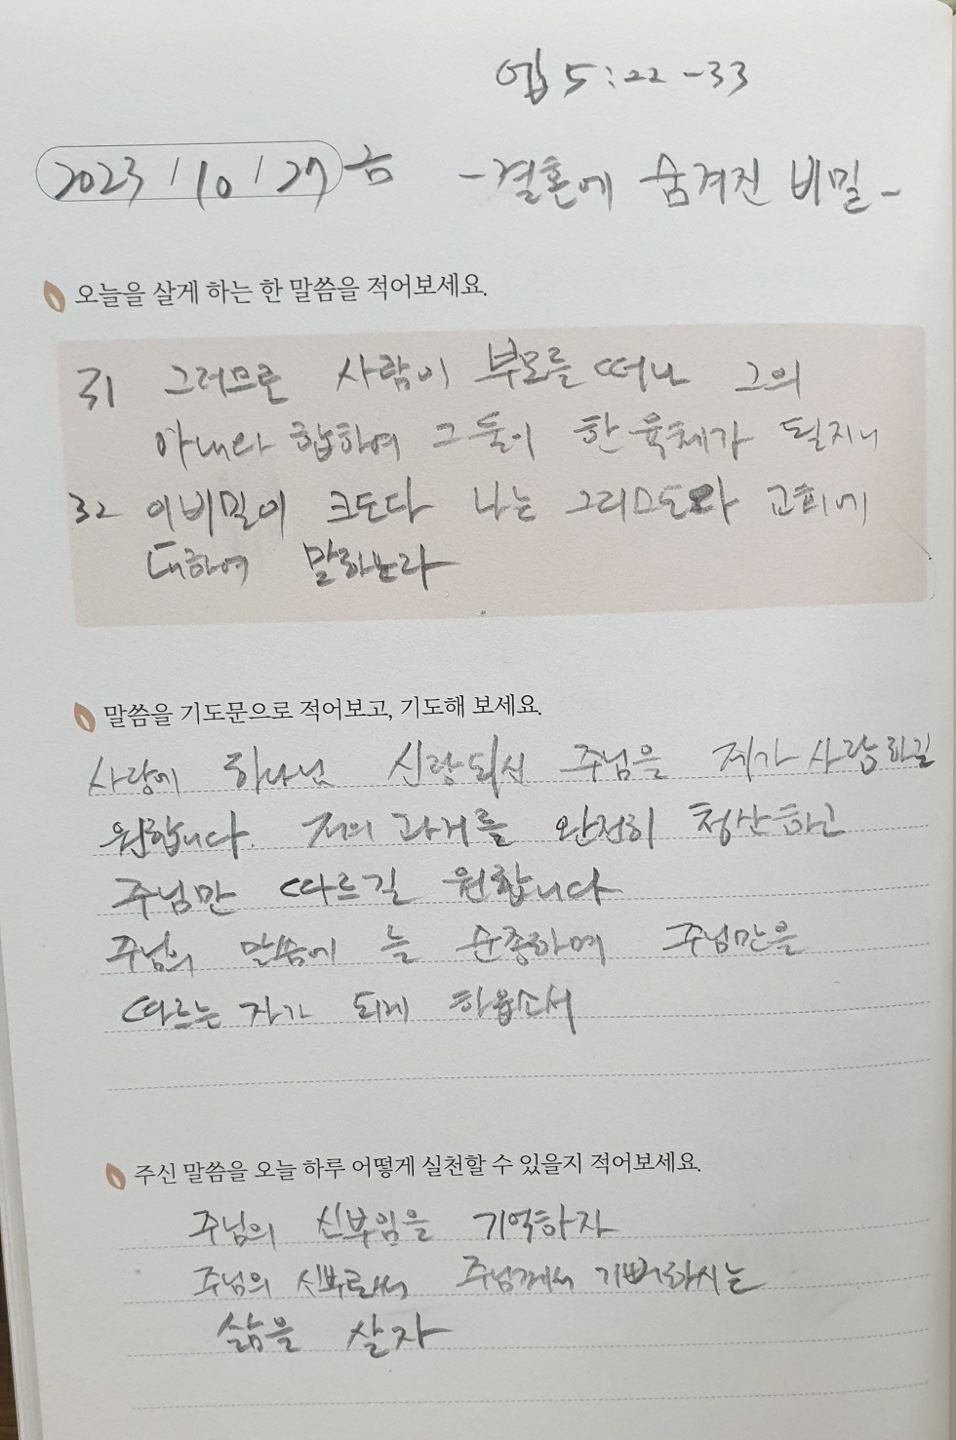 엡 5:22-33
2023/10/27 금 -결혼에 숨겨진 비밀-
오늘을 살게 하는 한 말씀을 적어보세요.
31 그러므로 사람이 부모를 떠나 그의
아내와 합하여 그 둘이 한 육체가 될지니
32 이 비밀이 크도다 나는 그리스도와 교회에
대하여 말하노라
말씀을 기도문으로 적어보고, 기도해 보세요.
사랑에 하나님 신랑되신 주님을 제가 사랑하길
원합니다. 저의 과거를 완전히 청산하고
주님만 따르길 원합니다
주님의 말씀에 늘 순종하여 주님만을
따르는 자가 되게 하옵소서
주신 말씀을 오늘 하루 어떻게 실천할 수 있을지 적어보세요.
주님의 신부임을 기억하자
주님의 신부로써 주님께서 기뻐하시는
삶을 살자